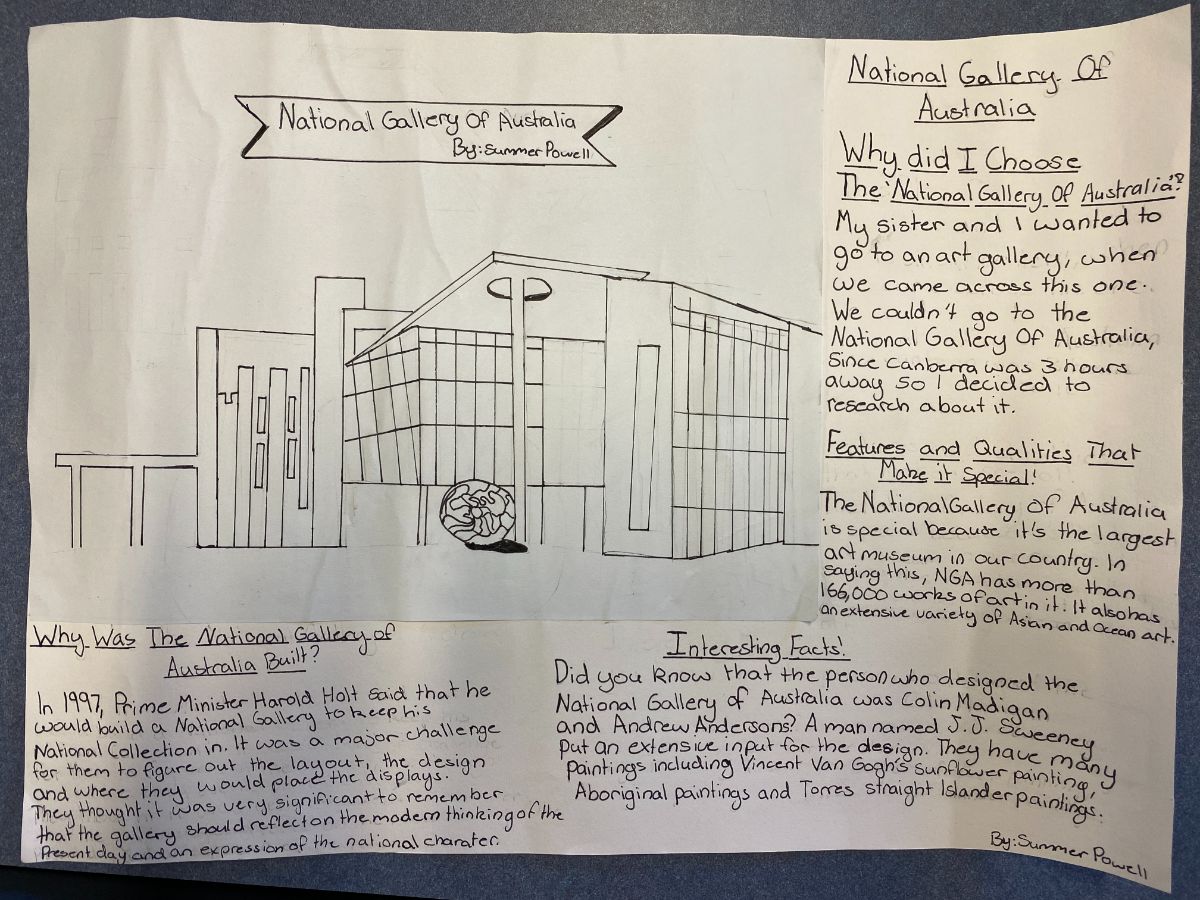 National Gallery Of Australia
By: Summer Powell
National Gallery Of
Australia
Why did I Choose
The 'National Gallery Of Australia'?
My sister and I wanted to
go to an art gallery, when
we came across this one.
We couldn't go to the
National Gallery Of Australia,
Since Canberra was 3 hours
away so I decided to
research about it.
Features and Qualities That
Make it Special!
The National Gallery Of Australia
is special because it's the largest
art museum in our country. In
saying this, NGA has more than
166,000 works of art in it. It also has
an extensive variety of Asian and Ocean art.
Why Was The National Gallery of
Australia Built?
In 1997, Prime Minister Harold Holt said that he
would build a National Gallery to keep his
National Collection in. It was a major challenge
for them to figure out the layout, the design
and where they would place the displays.
They thought it was very significant to remember
that the gallery should reflect on the modern thinking of the
Present day and an expression of the national charater.
Interesting Facts!
Did you know that the person who designed the
National Gallery of Australia was Colin Madigan
and Andrew Andersons? A man named J.J. Sweeney
put an extensive input for the design. They have many
paintings including Vincent Van Gogh's sunflower painting,
Aboriginal paintings and Torres straight Islander paintings.
By: Summer Powell